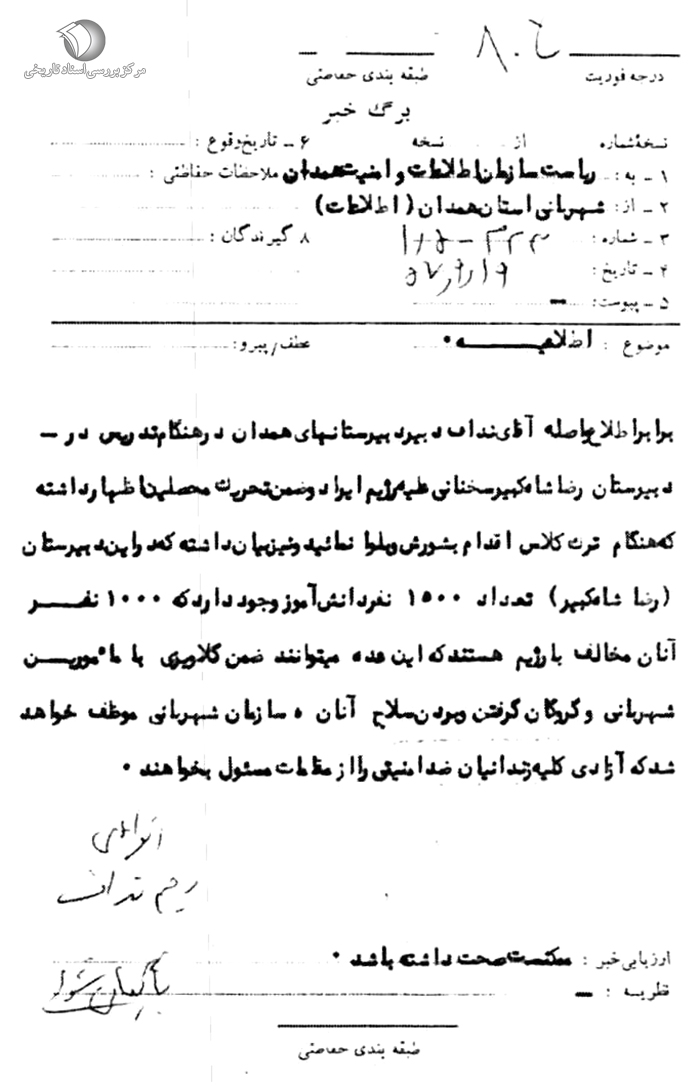 مرکز بررسی اسناد تاریخی
درجه فوریت
طبقه بندی حفاظتی
برگ خبر
نسخه شماره از نسخه
۶ - تاریخ وقوع :
۱ - به : ریاست سازمان اطلاعات و امنیت همدان
ملاحظات حفاظتی :
۲ - از : شهربانی استان همدان (اطلاعات)
۳ - شماره :
۸ گیرندگان :
۴ - تاریخ :
۵ - پیوست : -
موضوع : اطلاعیه ۰
عطف/پیرو :
برابر اطلاع واصله آقای نداف دبیر دبیرستانهای همدان در هنگام تدریس در -
دبیرستان رضا شاه کبیر سخنانی علیه رژیم ایراد و ضمن تحریک محصلین اظهار داشته
که هنگام ترک کلاس اقدام بشورش و بلوا نمائید و نیز بیان داشته که در این دبیرستان
(رضا شاه کبیر) تعداد ۱۵۰۰ نفر دانش آموز وجود دارد که ۱۰۰۰ نفر
آنان مخالف با رژیم هستند که این عده میتوانند ضمن گلاویزی با مأمورین
شهربانی و گروگان گرفتن و بردن سلاح آنان ه سازمان شهربانی موظف خواهد
شد که آزادی کلیه زندانیان ضد امنیتی را از مقامات مسئول بخواهند ۰
رحیم نداف
ارزیابی خبر : ممکنست صحت داشته باشد ۰
نظریه : -
بایگانی شود
طبقه بندی حفاظتی